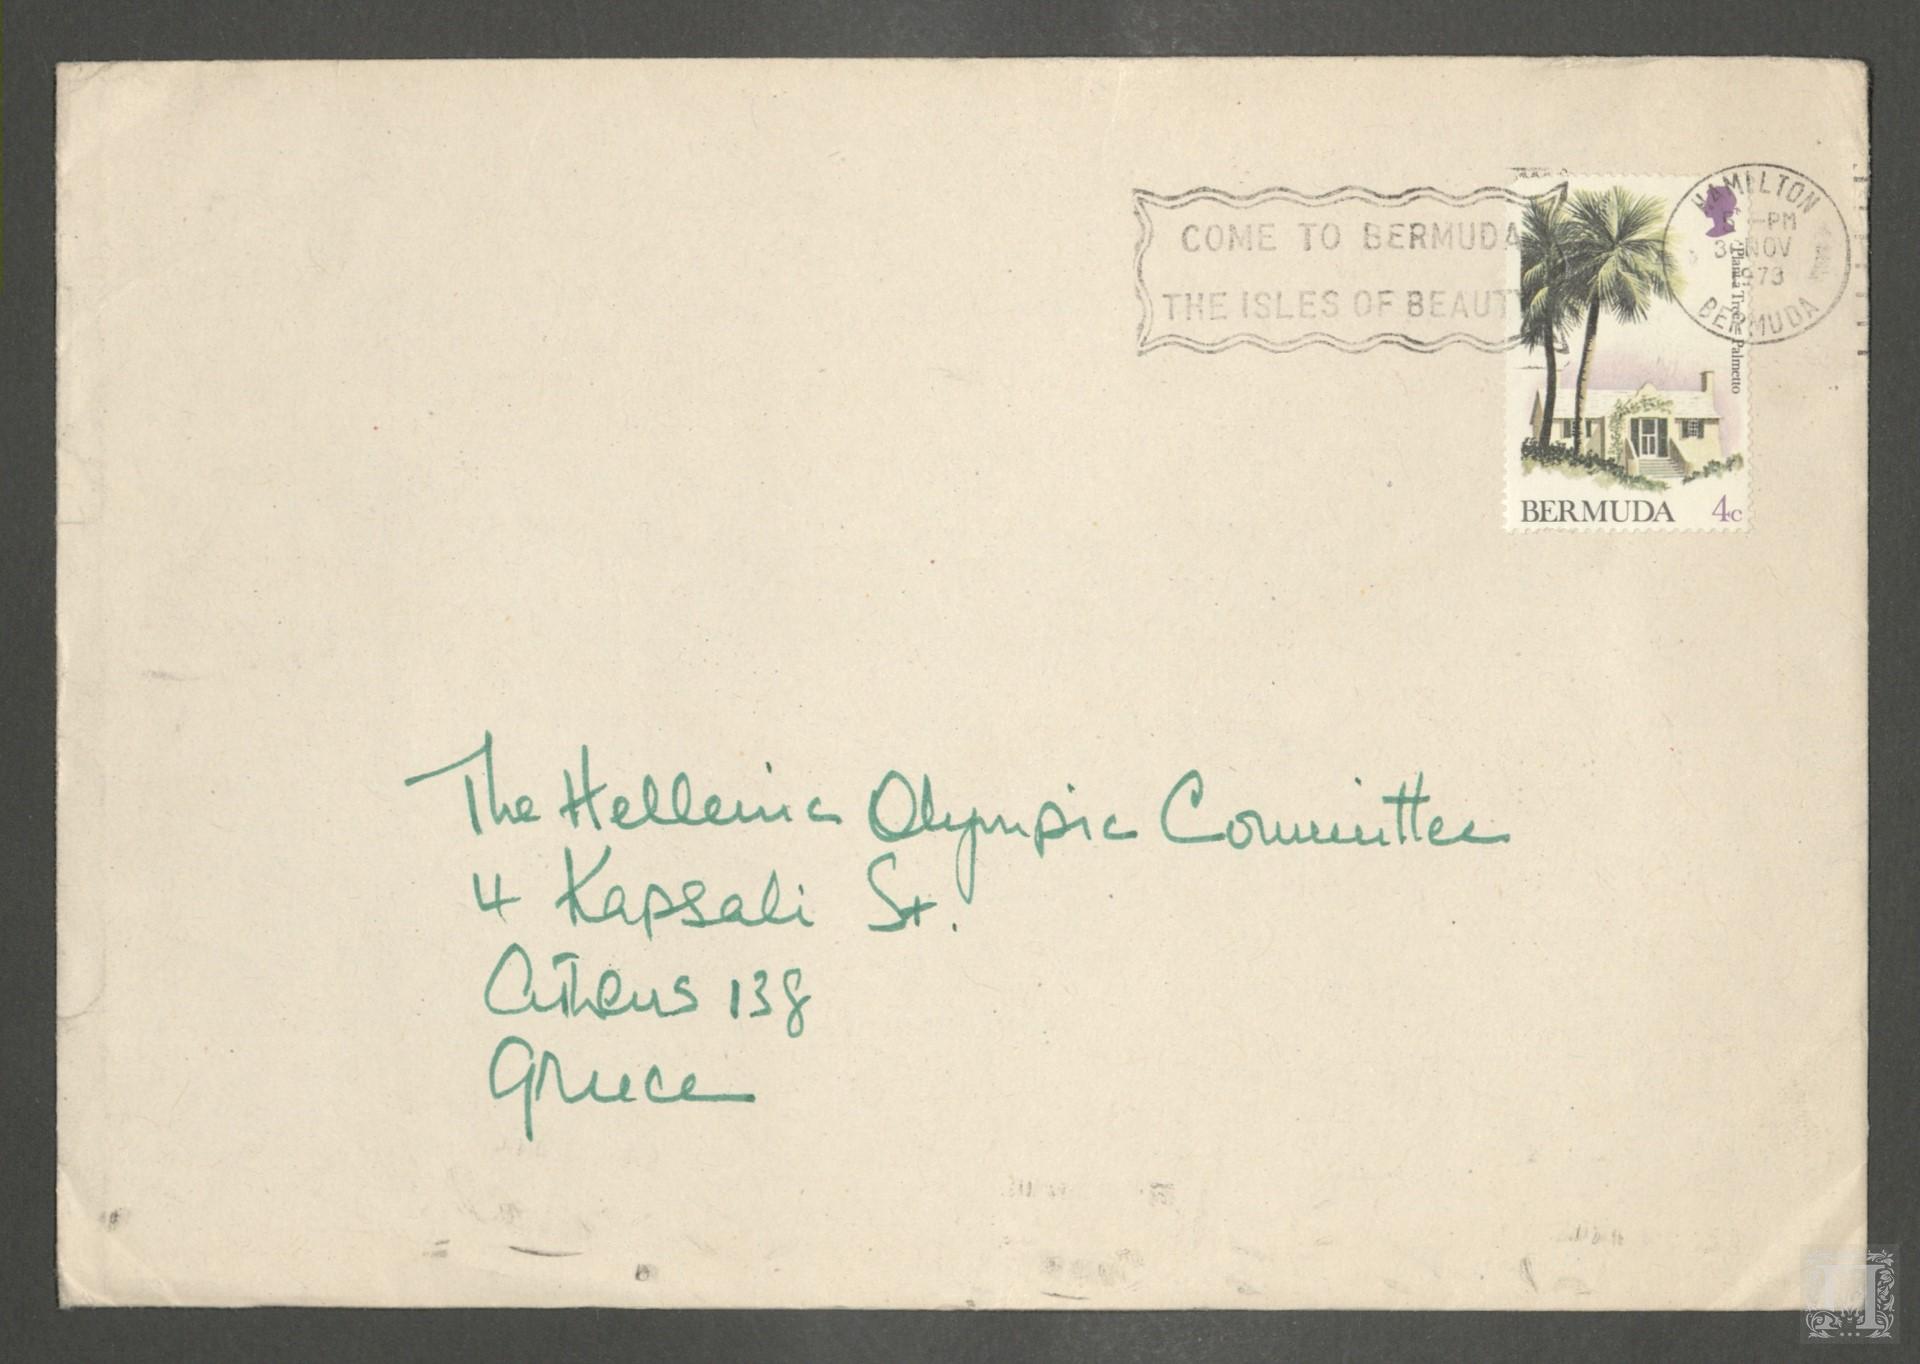 COME TO BERMUDA
THE ISLES OF BEAUTY
HAMILTON
PM
30 NOV
1973
BERMUDA
Plant a Tree Palmetto
BERMUDA 4c
The Hellenic Olympic Committee
4 Kapsali St.
Athens 138
Greece